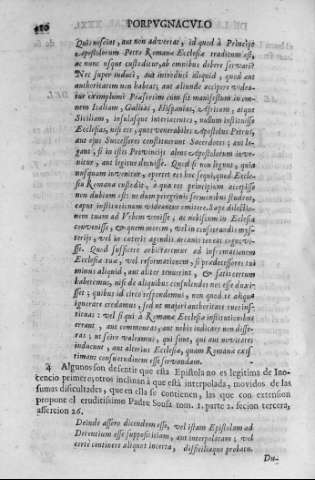 PORPVGNACVLO
Quis nesciat, aut non advertat, id quod à Principe
Apostolorum Petro Romana Ecclesia traditum est,
ac nunc usque custoditur, ab omnibus debere servari?
Nec super induci, aut introduci aliquid, quod aut
authoritatem non habeat, aut aliunde accipere videa-
tur exemplum? Præsertim cum sit manifestum in om-
nem Italiam, Gallias, Hispanias, Africam, atque
Siciliam, insulasque interiacentes, nullum instituisse
Ecclesias, nisi eos, quos venerabilis Apostolus Petrus,
aut ejus Successores constituerunt Sacerdotes; aut le-
gant, si in istis Provincijs alius Apostolorum inve-
nitur, aut legitur docuisse. Quod si non legunt, quia
nusquam inveniunt, oportet eos hoc sequi, quod Eccle-
sia Romana custodit, à qua eos principium accepisse
non dubium est: ne dum peregrinis sermonibus student,
caput institutionum videantur omittere. Sæpe dilectio-
nem tuam ad Urbem venisse, ac nobiscum in Ecclesia
convenisse, & quem morem, vel in consecrandis myste-
rijs, vel in cæteris agendis arcanis teneat cognovis-
se. Quod sufficere arbitrarer ad informationem
Ecclesiæ tuæ, vel reformationem, si prædecessores tui
minus aliquid, aut aliter tenuerint, & satis certum
haberemus, nisi de aliquibus consulendos nos esse duxis-
ses; quibus id circo respondemus, non quod te aliqua
ignorare credamus, sed ut majori authoritate tuos ins-
tituas: vel si qui à Romanæ Ecclesiæ institutionibus
errant, aut commoneas, aut nobis indicare non diffe-
ras; ut scire valeamus, qui sunt, qui aut novitates
inducunt, aut alterius Ecclesiæ, quam Romanæ exis-
timant consuetudinem esse servandam.
4. Algunos son desentir que esta Epistola no es legitima de Ino-
cencio primero; otros inclinan à que està interpolada, movidos de las
sumas dificultades, que en ella se contienen, las que con extension
propone el eruditissimo Padre Sousa tom. 1. parte 2. seccion tercera,
assercion 26.
Deinde assero dicendum esse, vel istam Epistolam ad
Decentium esse suppositiam, aut interpolatam; vel
certè continere aliquot incerta, difficileque probatu.
Du-